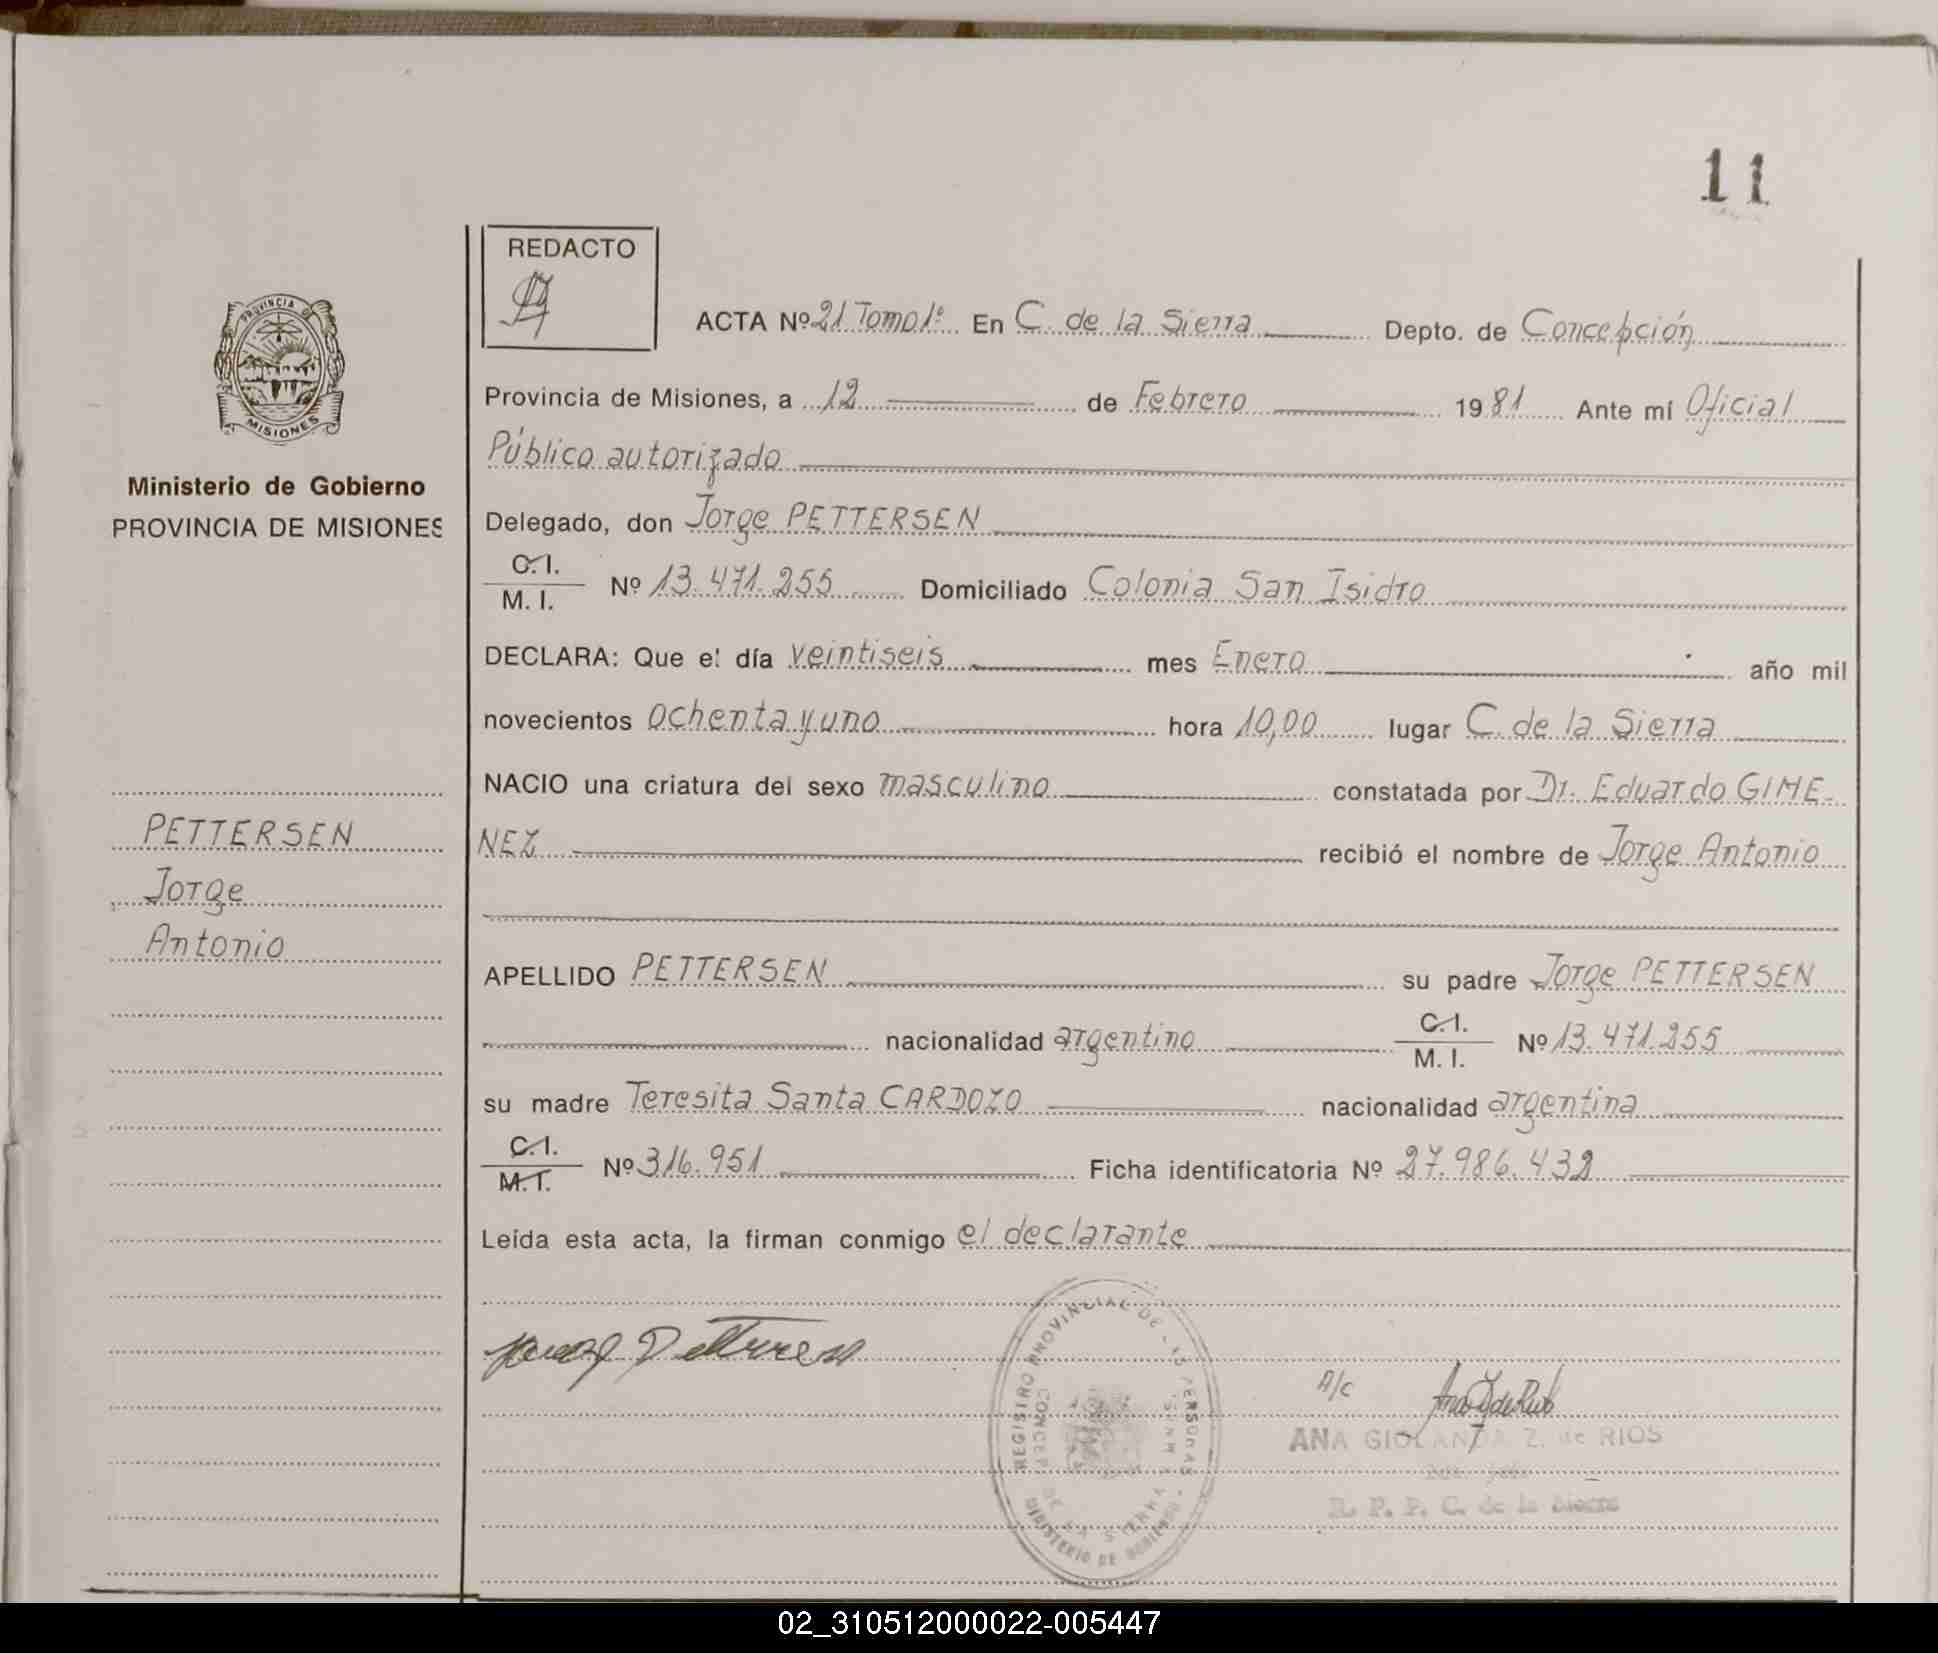 11
REDACTO
ACTA Nº 21 Tomo 1º En C. de la Sierra Depto. de Concepción
Provincia de Misiones, a 12 de Febrero 1981 Ante mí Oficial
Público autorizado
Delegado, don Jorge PETTERSEN
C.I.
M. I. Nº 13.471.255 Domiciliado Colonia San Isidro
DECLARA: Que el día veintiseis mes Enero año mil
novecientos ochenta y uno hora 10,00 lugar C. de la Sierra
NACIO una criatura del sexo masculino constatada por Dr. Eduardo GIME-
NEZ recibió el nombre de Jorge Antonio
APELLIDO PETTERSEN su padre Jorge PETTERSEN
nacionalidad argentino C.I.
M. I. Nº 13.471.255
su madre Teresita Santa CARDOZO nacionalidad argentina
C.I.
M.I. Nº 316.951 Ficha identificatoria Nº 27.986.432
Leída esta acta, la firman conmigo el declarante
PROVINCIA DE
MISIONES
Ministerio de Gobierno
PROVINCIA DE MISIONES
PETTERSEN
Jorge
Antonio
REGISTRO PROVINCIAL DE PERSONAS
DE LA SIERRA
MINISTERIO DE GOBIERNO
A/C
ANA GIOLANDA Z. de RIOS
R. P. P. C. de la Sierra
02_310512000022-005447